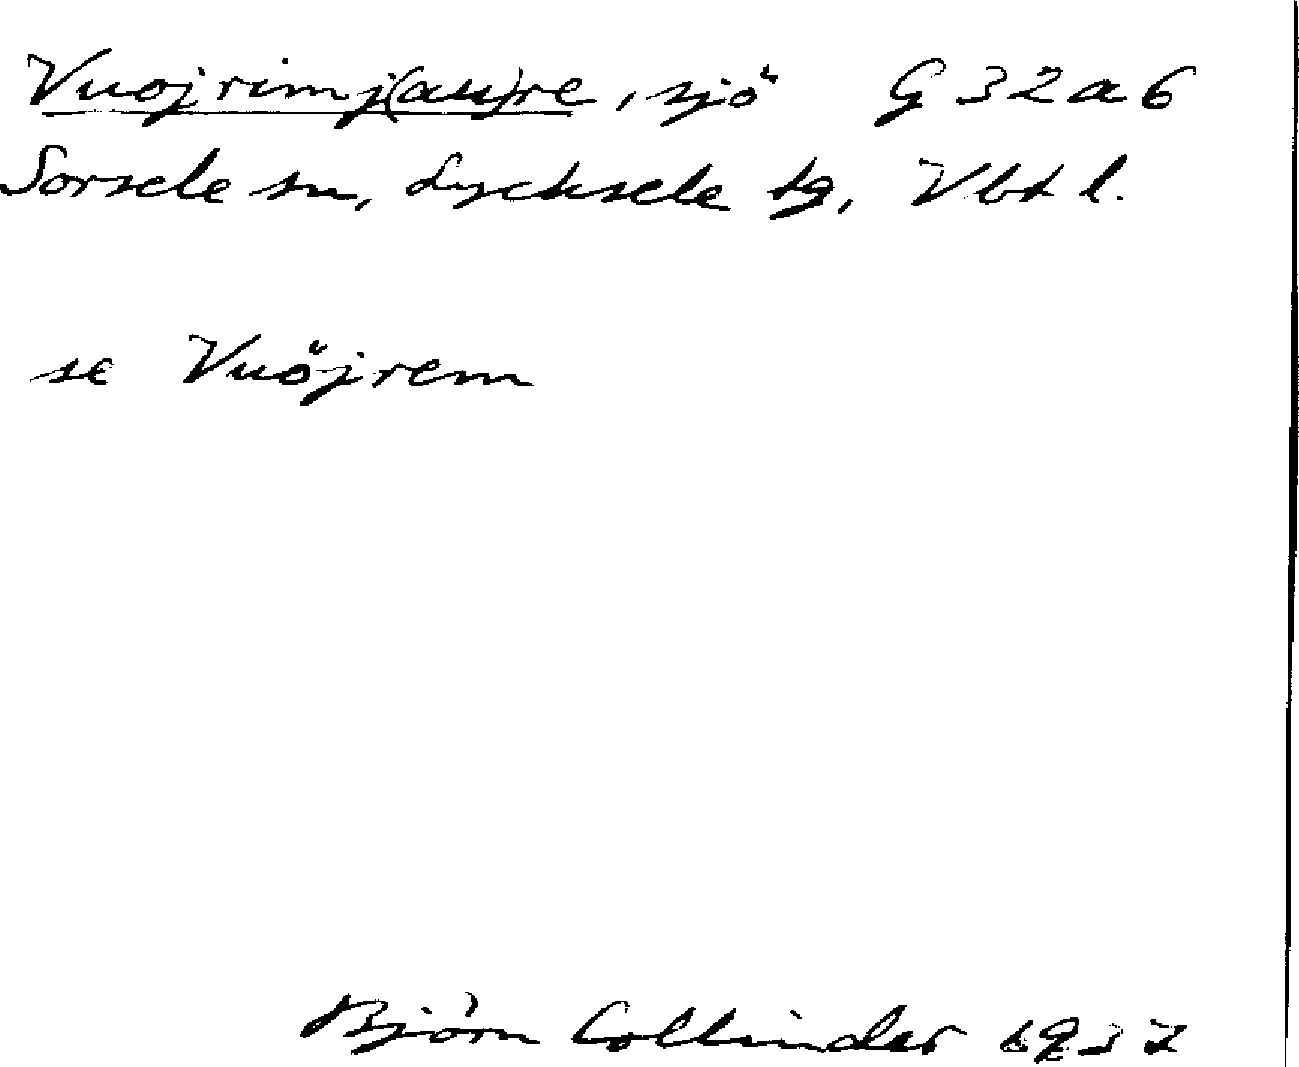 Vuojrimj(au)re, sjö G 32 a 6
Sorsele sn, Lycksele tg, Vbt l.
se Vuöjrem
Björn Collinder 1937